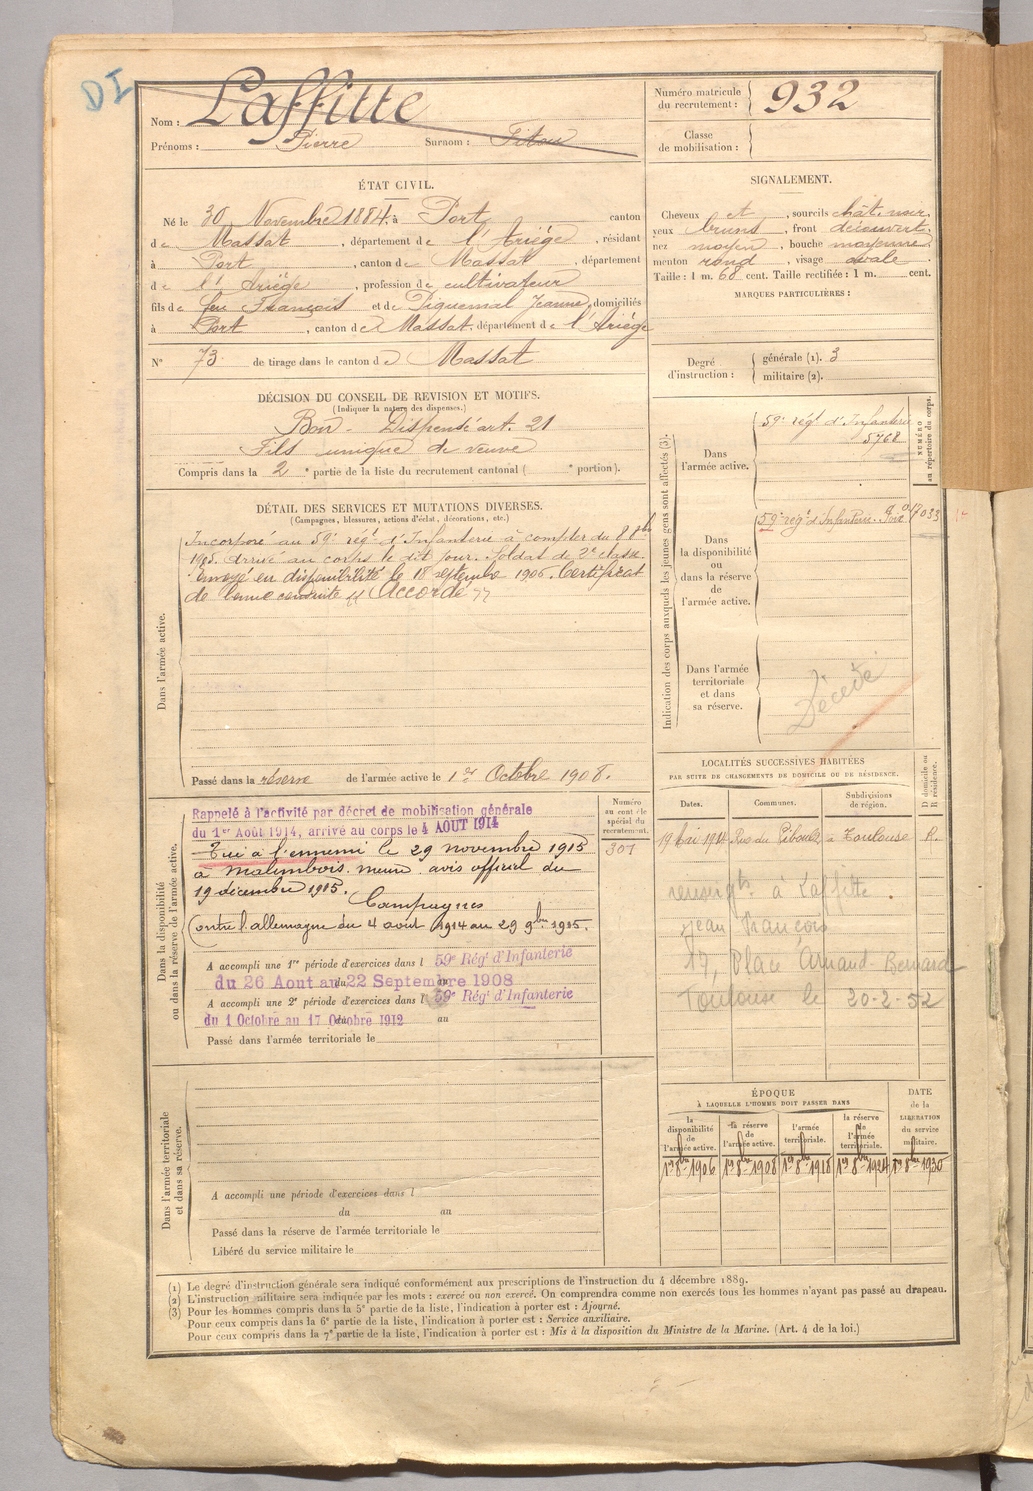 DI
Nom : Laffitte
Prénoms : Pierre Surnom : Titou
Numéro matricule du recrutement : 932
Classe de mobilisation :
ÉTAT CIVIL.
Né le 30 Novembre 1884, à Port canton
de Massat, département de l'Ariège, résidant
à Port, canton de Massat, département
de l'Ariège, profession de cultivateur
fils de feu François et de Piquemal Jeanne, domiciliés
à Port, canton de Massat, département de l'Ariège
N° 73 de tirage dans le canton de Massat
SIGNALEMENT.
Cheveux et, sourcils chât. noir,
yeux bruns, front découvert,
nez moyen, bouche moyenne
menton rond, visage ovale
Taille : 1 m. 68 cent. Taille rectifiée : 1 m. cent.
MARQUES PARTICULIÈRES :
Degré d'instruction :
générale (1). 3
militaire (2).
DÉCISION DU CONSEIL DE REVISION ET MOTIFS.
(Indiquer la nature des dispenses.)
Bon - Dispensé art. 21
Fils unique de veuve
Compris dans la 2e partie de la liste du recrutement cantonal ( e portion).
DÉTAIL DES SERVICES ET MUTATIONS DIVERSES.
(Campagnes, blessures, actions d'éclat, décorations, etc.)
Dans l'armée active.
Incorporé au 59e régt d'Infanterie à compter du 8 8bre
1905. Arrivé au corps le dit jour. Soldat de 2e classe.
envoyé en disponibilité le 18 septembre 1906. Certificat
de bonne conduite "Accordé"
Passé dans la réserve de l'armée active le 1er Octobre 1908.
Indication des corps auxquels les jeunes gens sont affectés (3).
NUMÉRO au répertoire du corps.
Dans l'armée active.
59e régt d'Infanterie
5768
Dans la disponibilité ou dans la réserve de l'armée active.
59e régt d'Infanterie
Dans l'armée territoriale et dans sa réserve.
Décédé
Dans la disponibilité ou dans la réserve de l'armée active.
Rappelé à l'activité par décret de mobilisation générale
du 1er Août 1914, arrivé au corps le 4 AOUT 1914
Tué à l'ennemi le 29 novembre 1915
à Malimbois. meuse. avis officiel du
19 décembre 1915.
Campagnes
Contre l'allemagne du 4 août 1914 au 29 9bre 1915.
A accompli une 1re période d'exercices dans l 59e Rég' d'Infanterie
du 26 Aout au 22 Septembre 1908
A accompli une 2e période d'exercices dans l 59e Rég' d'Infanterie
du 1 Octobre au 17 Octobre 1912 au
Passé dans l'armée territoriale le
Numéro au contrôle spécial du recrutement.
301
LOCALITÉS SUCCESSIVES HABITÉES
PAR SUITE DE CHANGEMENTS DE DOMICILE OU DE RÉSIDENCE.
Dates. Communes. Subdivisions de région. D domicile ou R résidence.
19 Mai 1914 Rue du à Toulouse R.
renseigts à Laffitte
Jean François
17, Place Arnaud-Bernard
Toulouse le 20-2-52
ÉPOQUE
À LAQUELLE L'HOMME DOIT PASSER DANS
la disponibilité de l'armée active.
la réserve de l'armée active.
l'armée territoriale.
la réserve de l'armée territoriale.
DATE de la LIBÉRATION du service militaire.
1er 8bre 1906 1er 8bre 1908 1er 8bre 1918 1er 8bre 1924 1er 8bre 1930
Dans l'armée territoriale et dans sa réserve.
A accompli une période d'exercices dans l
du au
Passé dans la réserve de l'armée territoriale le
Libéré du service militaire le
(1) Le degré d'instruction générale sera indiqué conformément aux prescriptions de l'instruction du 4 décembre 1889.
(2) L'instruction militaire sera indiquée par les mots : exercé ou non exercé. On comprendra comme non exercés tous les hommes n'ayant pas passé au drapeau.
(3) Pour les hommes compris dans la 5e partie de la liste, l'indication à porter est : Ajourné.
Pour ceux compris dans la 6e partie de la liste, l'indication à porter est : Service auxiliaire.
Pour ceux compris dans la 7e partie de la liste, l'indication à porter est : Mis à la disposition du Ministre de la Marine. (Art. 4 de la loi.)